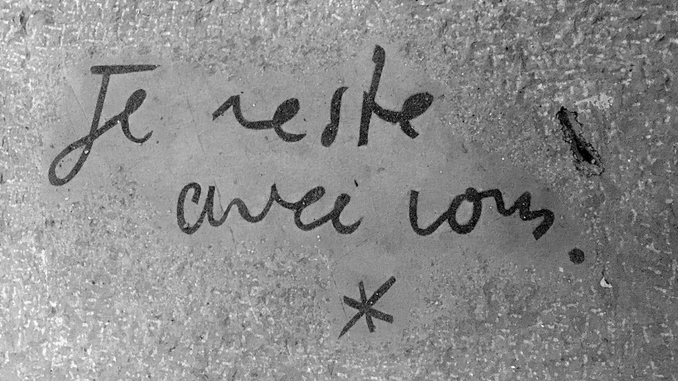 Je reste
avec vous.
*